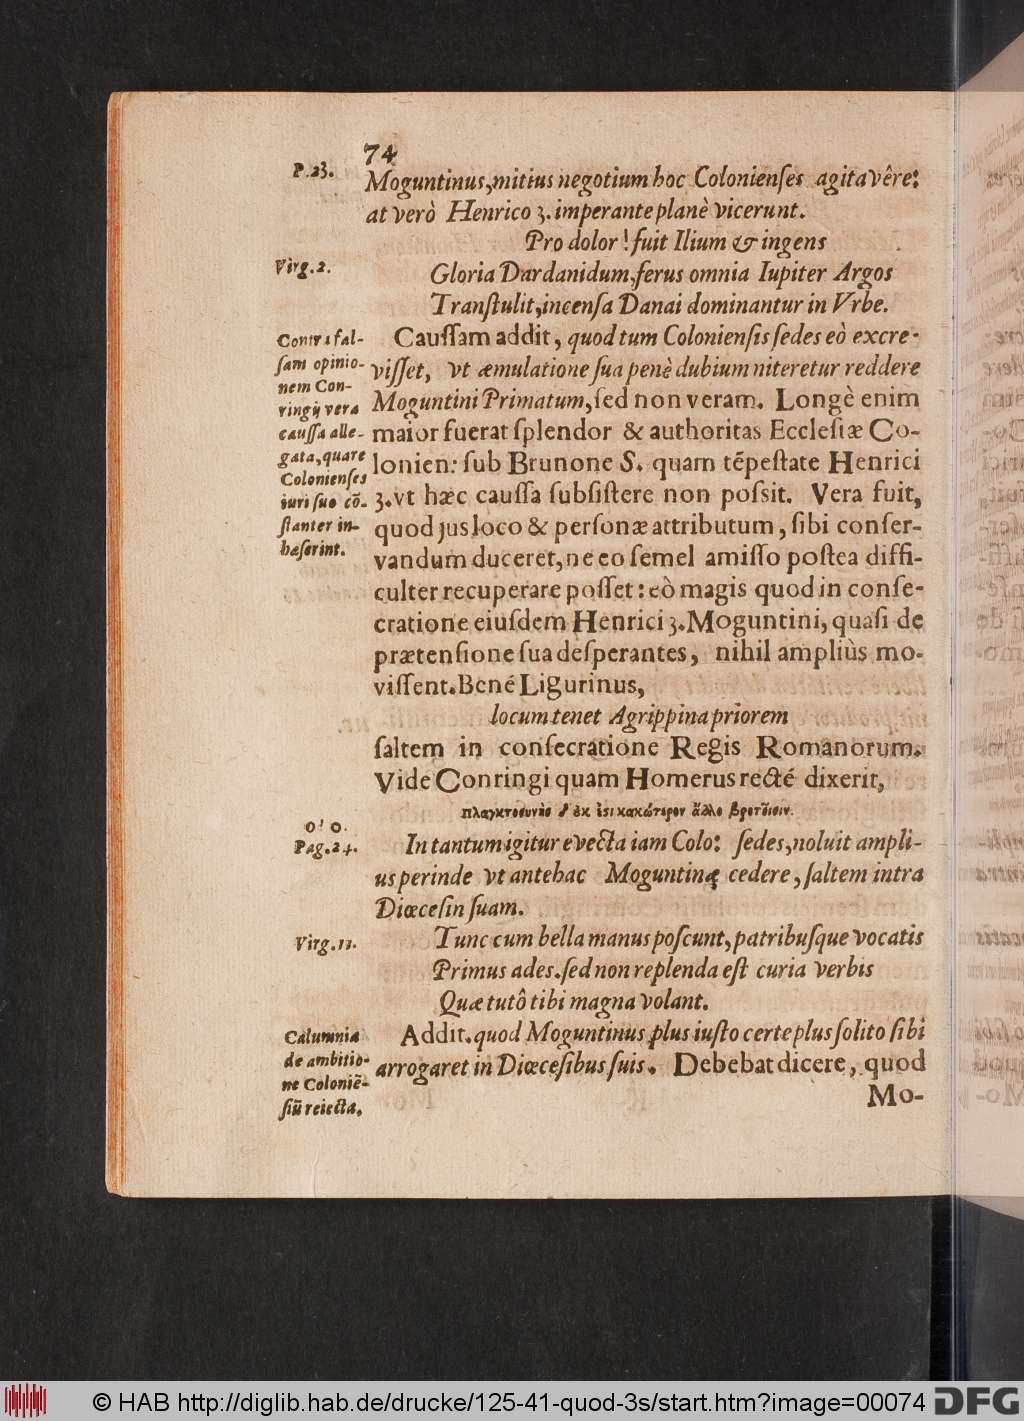 74
P. 23.
Moguntinus, mitius negotium hoc Colonienſes agitavêre:
at verò Henrico 3. imperante planè vicerunt.
Pro dolor! fuit Ilium & ingens
Virg. 2.
Gloria Dardanidum, ferus omnia Iupiter Argos
Tranſtulit, incenſa Danai dominantur in Vrbe.
Cauſſam addit, quod tum Colonienſis ſedes eò excre-
viſſet, vt æmulatione ſua penè dubium niteretur reddere
Moguntini Primatum, ſed non veram. Longè enim
maior fuerat ſplendor & authoritas Eccleſiæ Co-
lonien: ſub Brunone S. quam tēpeſtate Henrici
3. vt hæc cauſſa ſubſiſtere non poſsit. Vera fuit,
quod jus loco & perſonæ attributum, ſibi conſer-
vandum duceret, ne eo ſemel amiſſo poſtea diffi-
culter recuperare poſſet: eò magis quod in conſe-
cratione eiuſdem Henrici 3. Moguntini, quaſi de
prætenſione ſua deſperantes, nihil ampliùs mo-
viſſent. Bené Ligurinus,
Contra fal-
ſam opinio-
nem Con-
ringij vera
cauſſa alle-
gata, quare
Colonienſes
iuri ſuo cō-
ſtanter in-
hæſerint.
locum tenet Agrippina priorem
ſaltem in conſecratione Regis Romanorum.
Vide Conringi quam Homerus recté dixerit,
πλαγκτοσυνης δ' ἐκ ἐςι κακώτερον ἄλλο βροτοῖσιν.
Pag. 24.
In tantum igitur evecta iam Colo: ſedes, noluit ampli-
us perinde vt antehac Moguntinæ cedere, ſaltem intra
Diœceſin ſuam.
Virg. 11.
Tunc cum bella manus poſcunt, patribuſque vocatis
Primus ades. ſed non replenda eſt curia verbis
Quæ tutô tibi magna volant.
Addit. quod Moguntinus plus iuſto certe plus ſolito ſibi
arrogaret in Diœceſibus ſuis. Debebat dicere, quod
Calumnia
de ambitio-
ne Coloniē-
ſiū reiecta.
Mo-
© HAB http://diglib.hab.de/drucke/125-41-quod-3s/start.htm?image=00074
DFG